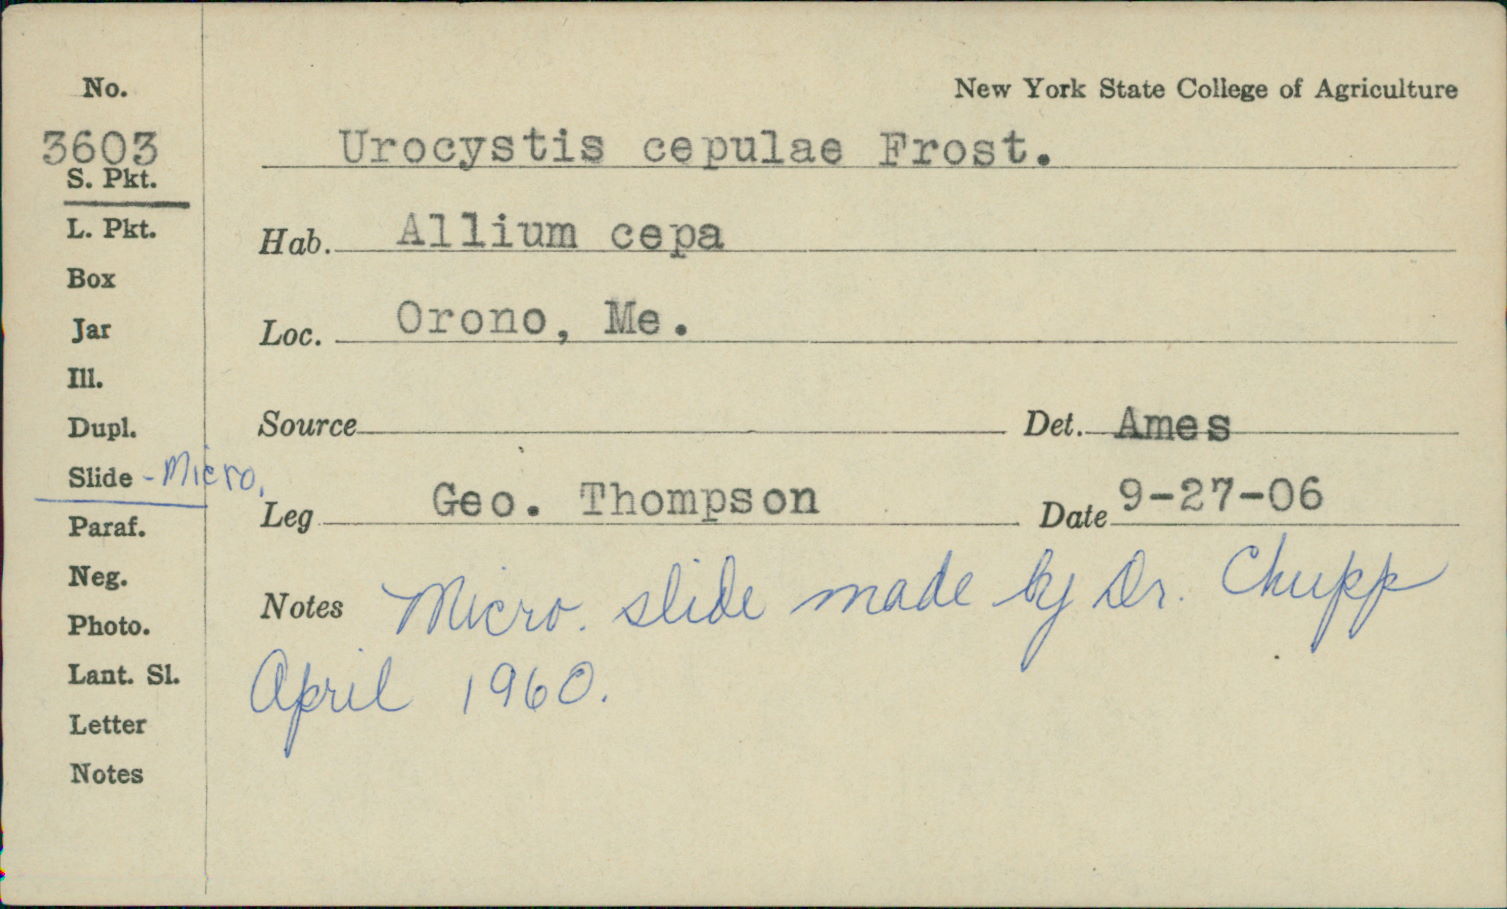 No.
New York State College of Agriculture
3603
Urocystis cepulae Frost.
S. Pkt.
L. Pkt.
Hab. Allium cepa
Box
Jar
Loc. Orono, Me.
Ill.
Dupl.
Source Det. Ames
Slide - Micro.
Leg Geo. Thompson Date 9-27-06
Paraf.
Neg.
Notes Micro. slide made by Dr. Chupp
Photo.
Lant. Sl.
April 1960.
Letter
Notes